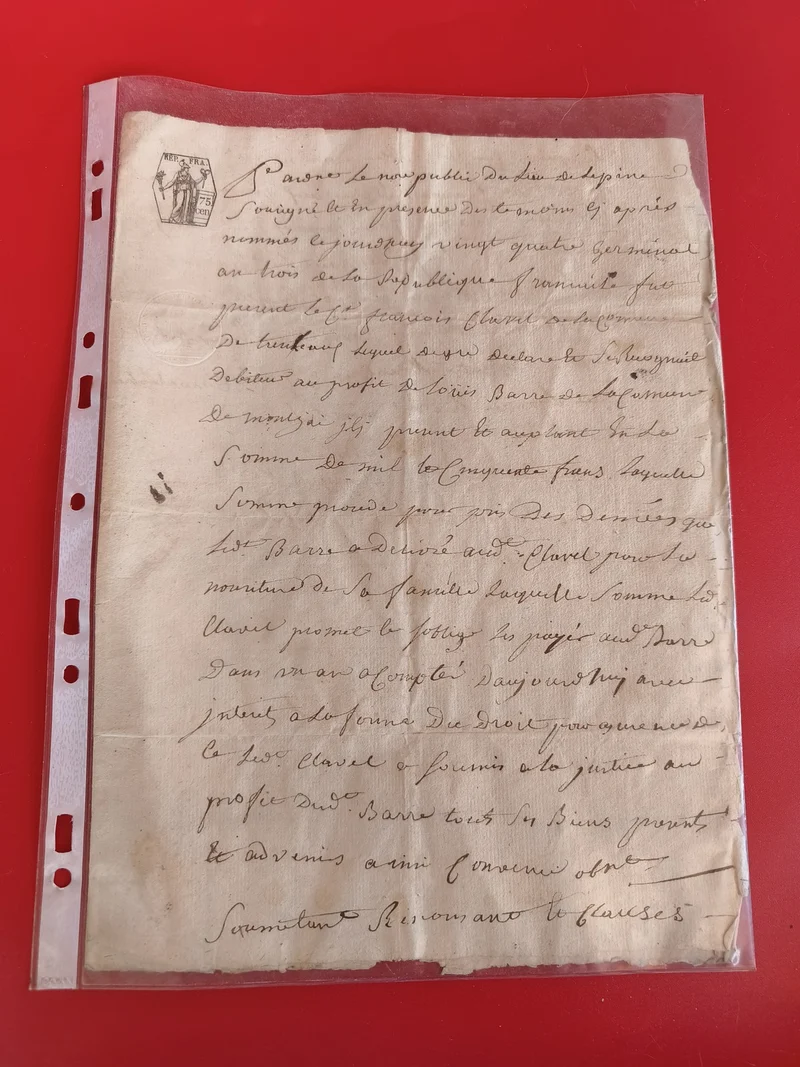 REP. FRA.
75
cen
Pardne Le nore public Du Lieu de Lepine
Sousigné Et En presence Des temoins Cj aprés
nommés Cejourdhuy vingt quatre Germinal
an trois de La Republique francaise fut
present le Cn francois Clavel de La Comune
De lequel de gre declare Et Se Reconnait
Debiteur au profit De loüis Barre de La Comune
De montjai jcj present Et aceptant En La
Somme De mil Cinquente frans Laquelle
Somme procede pour prix Des Denrées que
Ledt Barre a Delivré audt Clavel pour La
nouriture De Sa famille Laquelle Somme Led
Clavel promet Soblige payér audt Barre
Dans un an a Compter Daujourdhuj avec
jnterets a La forme Du Droit pour
Ce Ledt Clavel a Soumis a La justice au
profit Dudt Barre touts Ses Biens presents
Et advenir ainsi Convenu obnt
Soumetant Renonsant Clauses